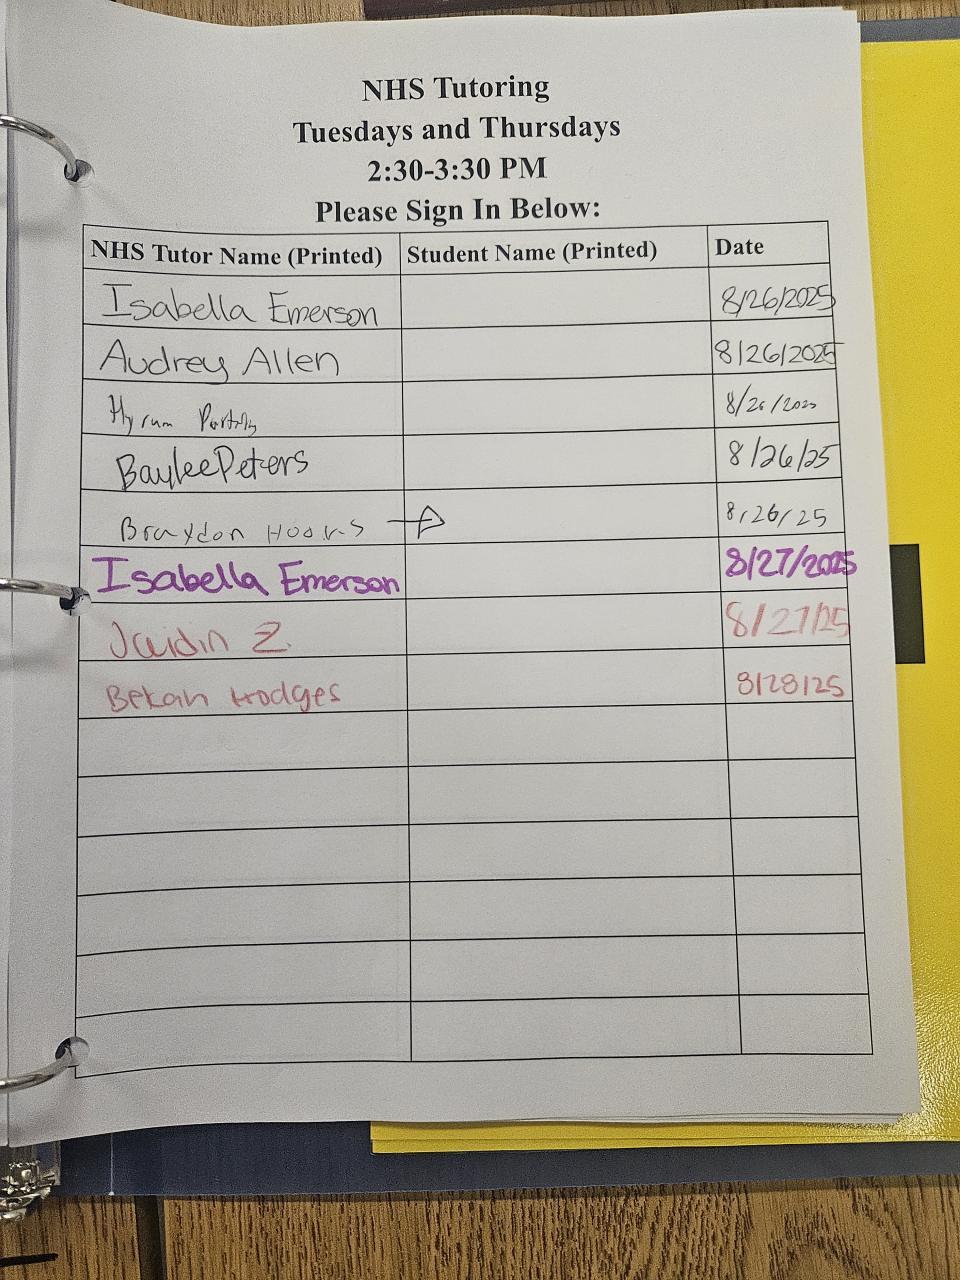 NHS Tutoring
Tuesdays and Thursdays
2:30-3:30 PM
Please Sign In Below:
NHS Tutor Name (Printed) Student Name (Printed) Date
Isabella Emerson 8/26/2025
Audrey Allen 8/26/2025
Hyrum 8/26/2025
Baylee Peters 8/26/25
Braydon 8/26/25
Isabella Emerson 8/27/2025
Jaidin Z. 8/27/25
Bekah Hodges 8/28/25